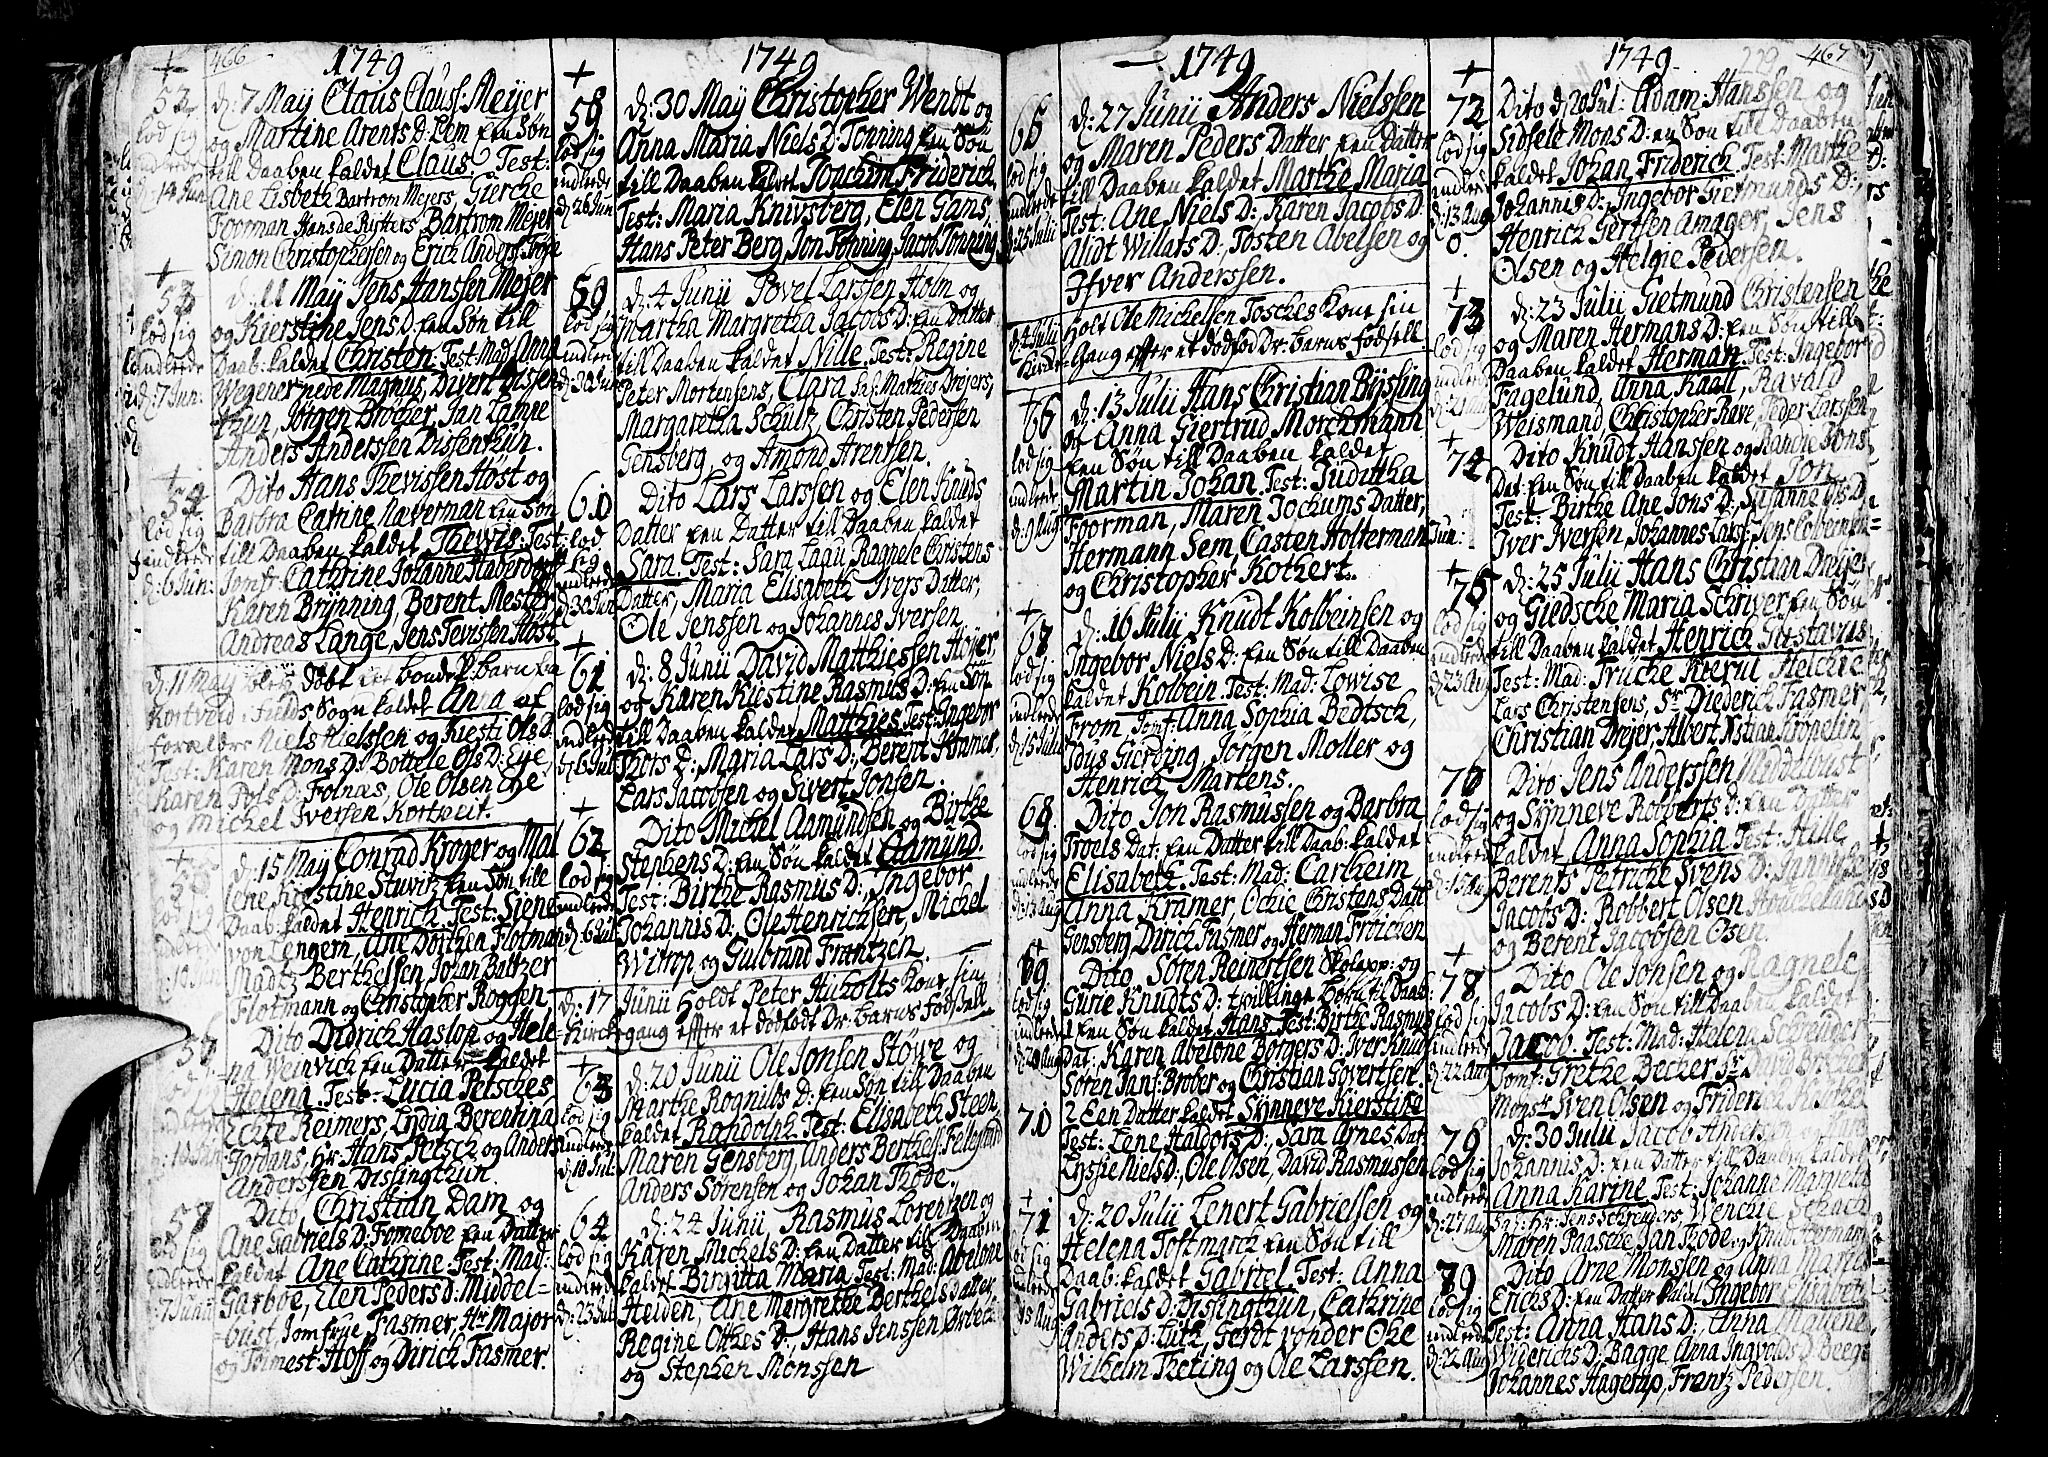 466
1749
52
lod sig
indlede
d: 14 Jun
d: 7 May Claus Clausf: Meyer
og Martine Arents D: Lem een Søn
till Daaben kaldet Claus. Test:
Ane Lisbeth Bartrom Mejers, Giercke
Foorman Hans de Rytters Bartrom Mejer
Simon Christophersen og Erich Anders:
53
lod sig
indlede
d: 7 Jun:
d: 11 May Jens Hanssen Mejer
og Kierstine Jens D: een Søn till
Daab: kaldet Christen. Test: Mad: Anna
Wegener, Magnus, Divert Dissen
thun, Jørgen Brocher, Jan Lampe
Anders Anderssen Dissenthun.
54
lod sig
indlede
d: 6 Jun:
Dito Hans Thevissen Høst og
Barbra Catrine Naverman een Søn
till Daaben kaldet Thewis. Test:
Jomf: Cathrine Johanne Haberdorf
Karen Brynning, Berent Mester
Andreas Lange, Jens Tevissen Høst.
d: 11 May blev døbt et bonde barn fra
Kortveid i Fields Sogn kaldet Anna af
forældre Niels Nielssen og Kiesti Ols D:
Test: Karen Mons D: Bottele Ols D: Eye,
Karen Pofs D: Folnæs, Ole Olsen Eye
og Michel Iversen Kortveit.
55
lod sig
indlede
d: 10 Jun
d: 15 May Conrad Krøger og Mal
lene Kiestine Stuvitz een Søn till
Daab: kaldet Henrich. Test: Siene
von Lengern, Ane Dorthea Flotman
Madtz Berthelsen, Johan Baltzer
Flotmann og Christopher Roggen
Dito Didrich Haslop og Hele
na Weinvich een Datter kaldet
Helena. Test: Lucia Petsches
Echte Reimers, Lydig Berentina
Jordans, Hr Hans Petsch og Anders
Anderssen Dissingthun.
57
lod sig
indlede
d: 7 Junii
Dito Christian Dam og
Ane Gabriels D: Fomeboe een Datter
kaldet Ane Cathrine. Test: Mad:
Garboe, Elen Peders D: Middel=
bust Jomfrue Fasmer, Hr Major
og Tolmest: Hoff og Dirich Fasmer.
1749
58
lod sig
indlede
d: 26 Jun
d: 30 May Christopher Wendt og
Anna Maria Niels D: Tonning een Søn
till Daaben kaldet Joachim Friderich.
Test: Maria Knivsberg, Elen Gams,
Hans Peter Berg, Jon Tonning, Jacob Tonning
59
lod sig
indlede
d: 30 Jun
d: 4 Junii Povel Larssen Holm og
Martha Margretha Jacobs D: een Datter
till Daaben kaldet Nille. Test: Regine
Peter Mortensens, Clara Sal: Mathies Drejers,
Margaretha Schultz, Christen Pedersen
Gensberg, og Amond Arentsen.
60
lod
sig
indlede
d: 30 Jun
Dito Lars Larssen og Elen Knuds
Datter een Datter till Daaben kaldet
Sara. Test: Sara Laau, Ragnele Christens
Datter, Maria Elisabeth Ivers Datter,
Ole Jenssen og Johannes Iversen.
61
lod sig
indlede
d: 6 Jul
d: 8 Junii David Matthiessen Høyer,
og Karen Kiestine Rasmus D: een Søn
till Daaben kaldet Matthies. Test: Ingebor
Thors D:, Maria Lars D:, Berent Kramer,
Lars Jacobsen og Sivert Jonsen.
62
lod sig
indlede
d: 6 Jul
Dito Michel Aamundsen og Birthe
Stephens D: een Søn kaldet Aamund.
Test: Birthe Rasmus D:, Ingebor
Johannis D: Ole Henrichsen, Michel
Witrop og Gulbrand Frantzen.
d: 17 Junii Holdt Peter Huholts Kone sin
Kirckegang effter et dødfødt Dr: barns Fødsell
63
lod sig
indlede
d: 10 Jul:
d: 20 Junii Ole Jonsen Støwe og
Marthe Rognilds D: een Søn till Daaben
kaldet Randolph. Test: Elisabeth Steen,
Maren Gensberg, Anders Berthelf: Fellezund
Anders Sørensen og Johan Thode.
64
lod sig
indlede
d: 23 Jul
d: 24 Junii, Rasmus Lorentzen og
Karen Michels D: een Datter till Daaben
kaldet Birgitta Maria. Test: Mad: Abelone
Heiden, Ane Margrethe Berthels Datter,
Regine Ottes D:, Hans Jenssen Ørbech
og Stephen Monssen
1749
65
lod sig
indlede
d: 25 Julii
d: 27 Junii Anders Nielssen
og Maren Peders Datter een Datter
till Daaben kaldet Marthe Maria
Test: Ane Niels D:, Karen Jacobs D:
Alidt Willars D:, Tosten Abelsen og
Ifver Anderssen.
d: 4 Julii Holt Ole Michelsen Tosches Kone sin
Kircke-Gang effter et dødfød Dr: barns fødsell
66
lod sig
indlede
d: 9 Aug
d: 13 Julii Hans Christian Byssing
og Anna Giertrud Morchmann
een Søn till Daaben kaldet
Martin Johan. Test: Juditha
Foorman, Maren Jochums Datter,
Hermann Sem, Casten Holterman
og Christopher Kothert.
67
lod sig
indlede
d: 15 Julii
d: 16 Julii Knudt Kolbeinsen og
Ingebor Niels D: een Søn till Daaben
kaldet Kolbein. Test: Mad: Lowise
From, Jomf: Anna Sophia Bedtsch,
Idus Giording, Jørgen Moller og
Henrich Martens.
68
lod sig
indlede
d: 13 Aug
Dito Jon Rasmussen og Barbra
Troels Dat: een Datter till Daab: kaldet
Elisabeth. Test: Mad: Carlheim
Anna Kramer, Ochie Christens Datt
Gensberg Dirich Fasmer og Herman Frtichen
69
lod sig
indlede
d: 20 Aug
Dito Søren Reinertsen Skolepp: og
Gurie Knudts D: tvillinge børn til Daab
1 een Søn kaldet Hans Test: Birthe Rasmus
Dat: Karen Abelone Børgers D: Iver Knud
Søren Jans: Brober og Christian Govertsen.
70
2 Een Datter kaldet Synneve Kierstine
Test: Lene Haldors D:, Sara Arnes Dat:
Lyssie Niels D:, Ole Olsen, David Rasmussen
71
lod sig
indlede
d: 15 Aug
d: 20 Julii Lenert Gabrielssen og
Helena Tostmarck een Søn till
Daab: kaldet Gabriel. Test: Anna
Gabriels D: Dissingthun, Cathrine
Anders D: Lütk, Gerdt vonder Ohe
Wilhelm Theting og Ole Larssen.
1749
467
72
lod sig
indlede
d: 13 Aug
0.
Dito d: 20 Jul: Adam Hanssen og
Sidsele Mons D: en Søn till Daaben
kaldet Johan Friderich Test: Marthe
Johannis D: Ingebor Siermands D:,
Henrich Gertsen Amager, Jens
Olsen og Helgie Pedersen.
73
lod sig
indlede
d: 21 Aug
d: 23 Julii Getmund Christensen
og Maren Hermans D: een Søn till
Daaben kaldet Herman. Test: Ingebor
Fagelund, Anna Kaall, Ravald
Weismand Christopher Rave, Peder Larssen
74
Jun:
Dito Knudt Hanssen og Ranche Jons
Dat: een Søn till Daaben kaldet Jon
Test: Birthe Ane Jons D:, Susanne Ols D:
Iver Iversen, Johannes Larsf: Jens
75
lod sig
indlede
d: 23 Aug
d: 25 Julii Hans Christian Drejer
og Giedsche Maria Schriver een Søn
till Daaben kaldet Henrich Gustavus
Test: Mad: Trüche Kierul Helchie
Lars Christensens, Sr Diederich Fasmer,
Christian Drejer, Albert Xstian Kropelin
76
lod sig
indlede
d: 15 Aug
Dito Jens Anderssen Middelbust
og Synneve Robberts D: een Datter
kaldet Anna Sophia Test: Hille
Berents Petriche Svens D: Jannicke
Jacobs D: Robbert Olsen
og Berent Jacobsen Øsen.
78
lod sig
indlede
d: 22 Aug
Dito Ole Jonsen og Ragnele
Jacobs D: een Søn till Daaben kaldet
Jacob. Test: Mad: Helena
Jomf: Grethe Becher Sr:
Monsr Sven Olsen og Friden
76
lod sig
indlede
d: 27 Aug
d: 30 Julii Jacob Anders
Johannis D: een Datter till Daaben kaldet
Anna Karine Test: Johanne Margreta
Sal: Hr: Jens Schreuders, Wenche Schach
Maren Paasche, Jan Thode og Knud Herman
79
lod sig
indlede
d: 22 Aug
Dito Arne Monssen og Anna Maria
Erichs D: een Datter kaldet Ingebor Elisabeth
Test: Anna Hans D:, Anna
Widerichs D: Bagge Anna Ingvolds D: Beegt
Johannes Hagerup, Frantz Pedersen.